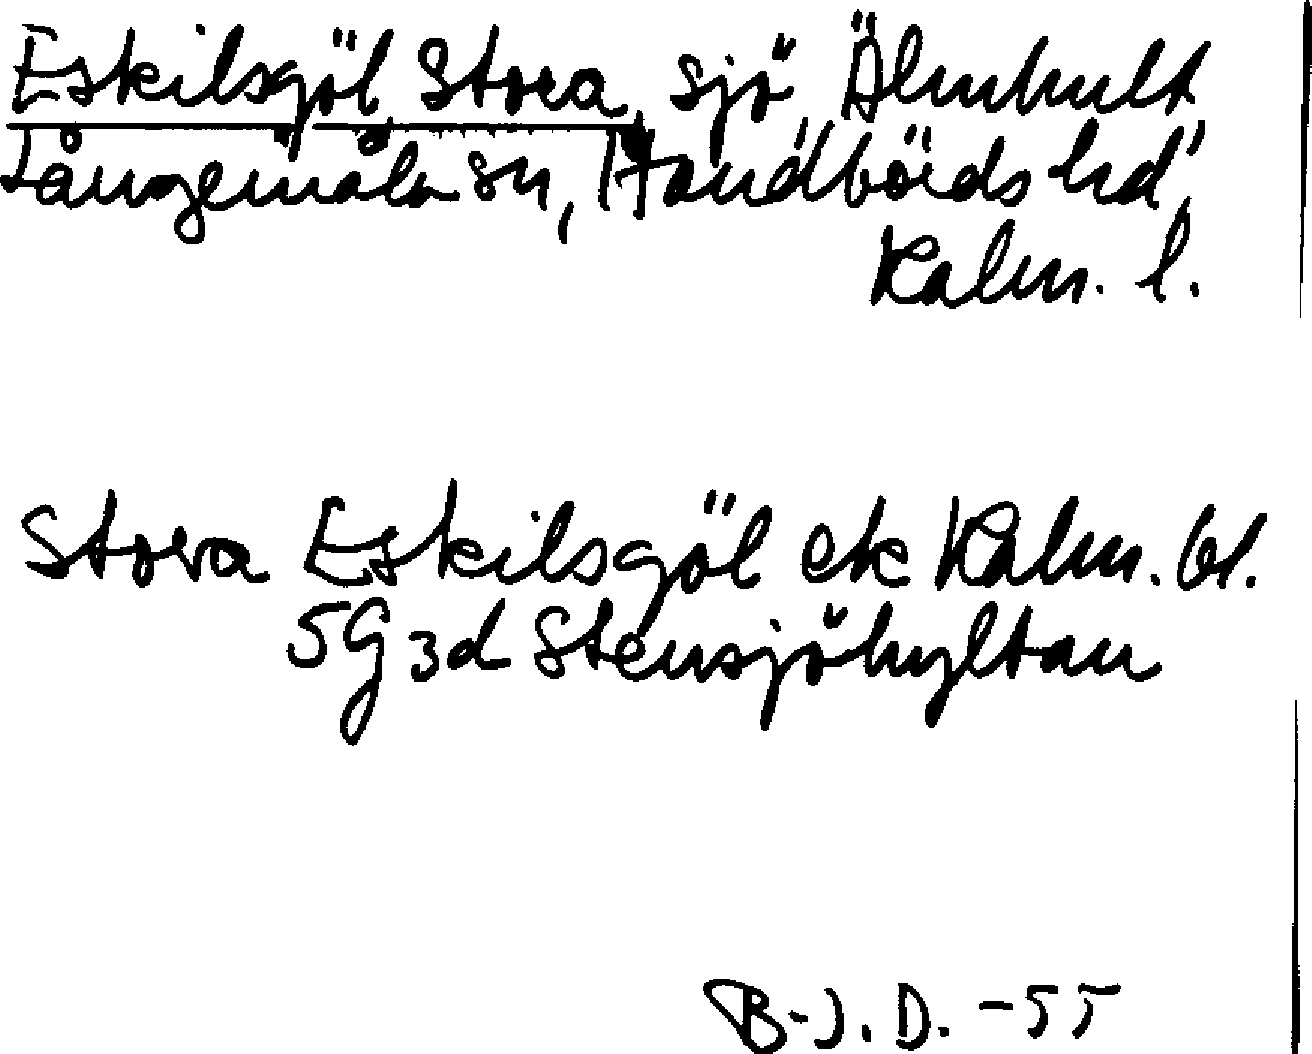 Eskilsgöl Stora, sjö, Älmhult
Långemåla sn, Handbörds hd,
Kalm. l.
Stora Eskilsgöl ek Kalm. bl.
5G3d Stensjöhyltan
B-J. D. -55